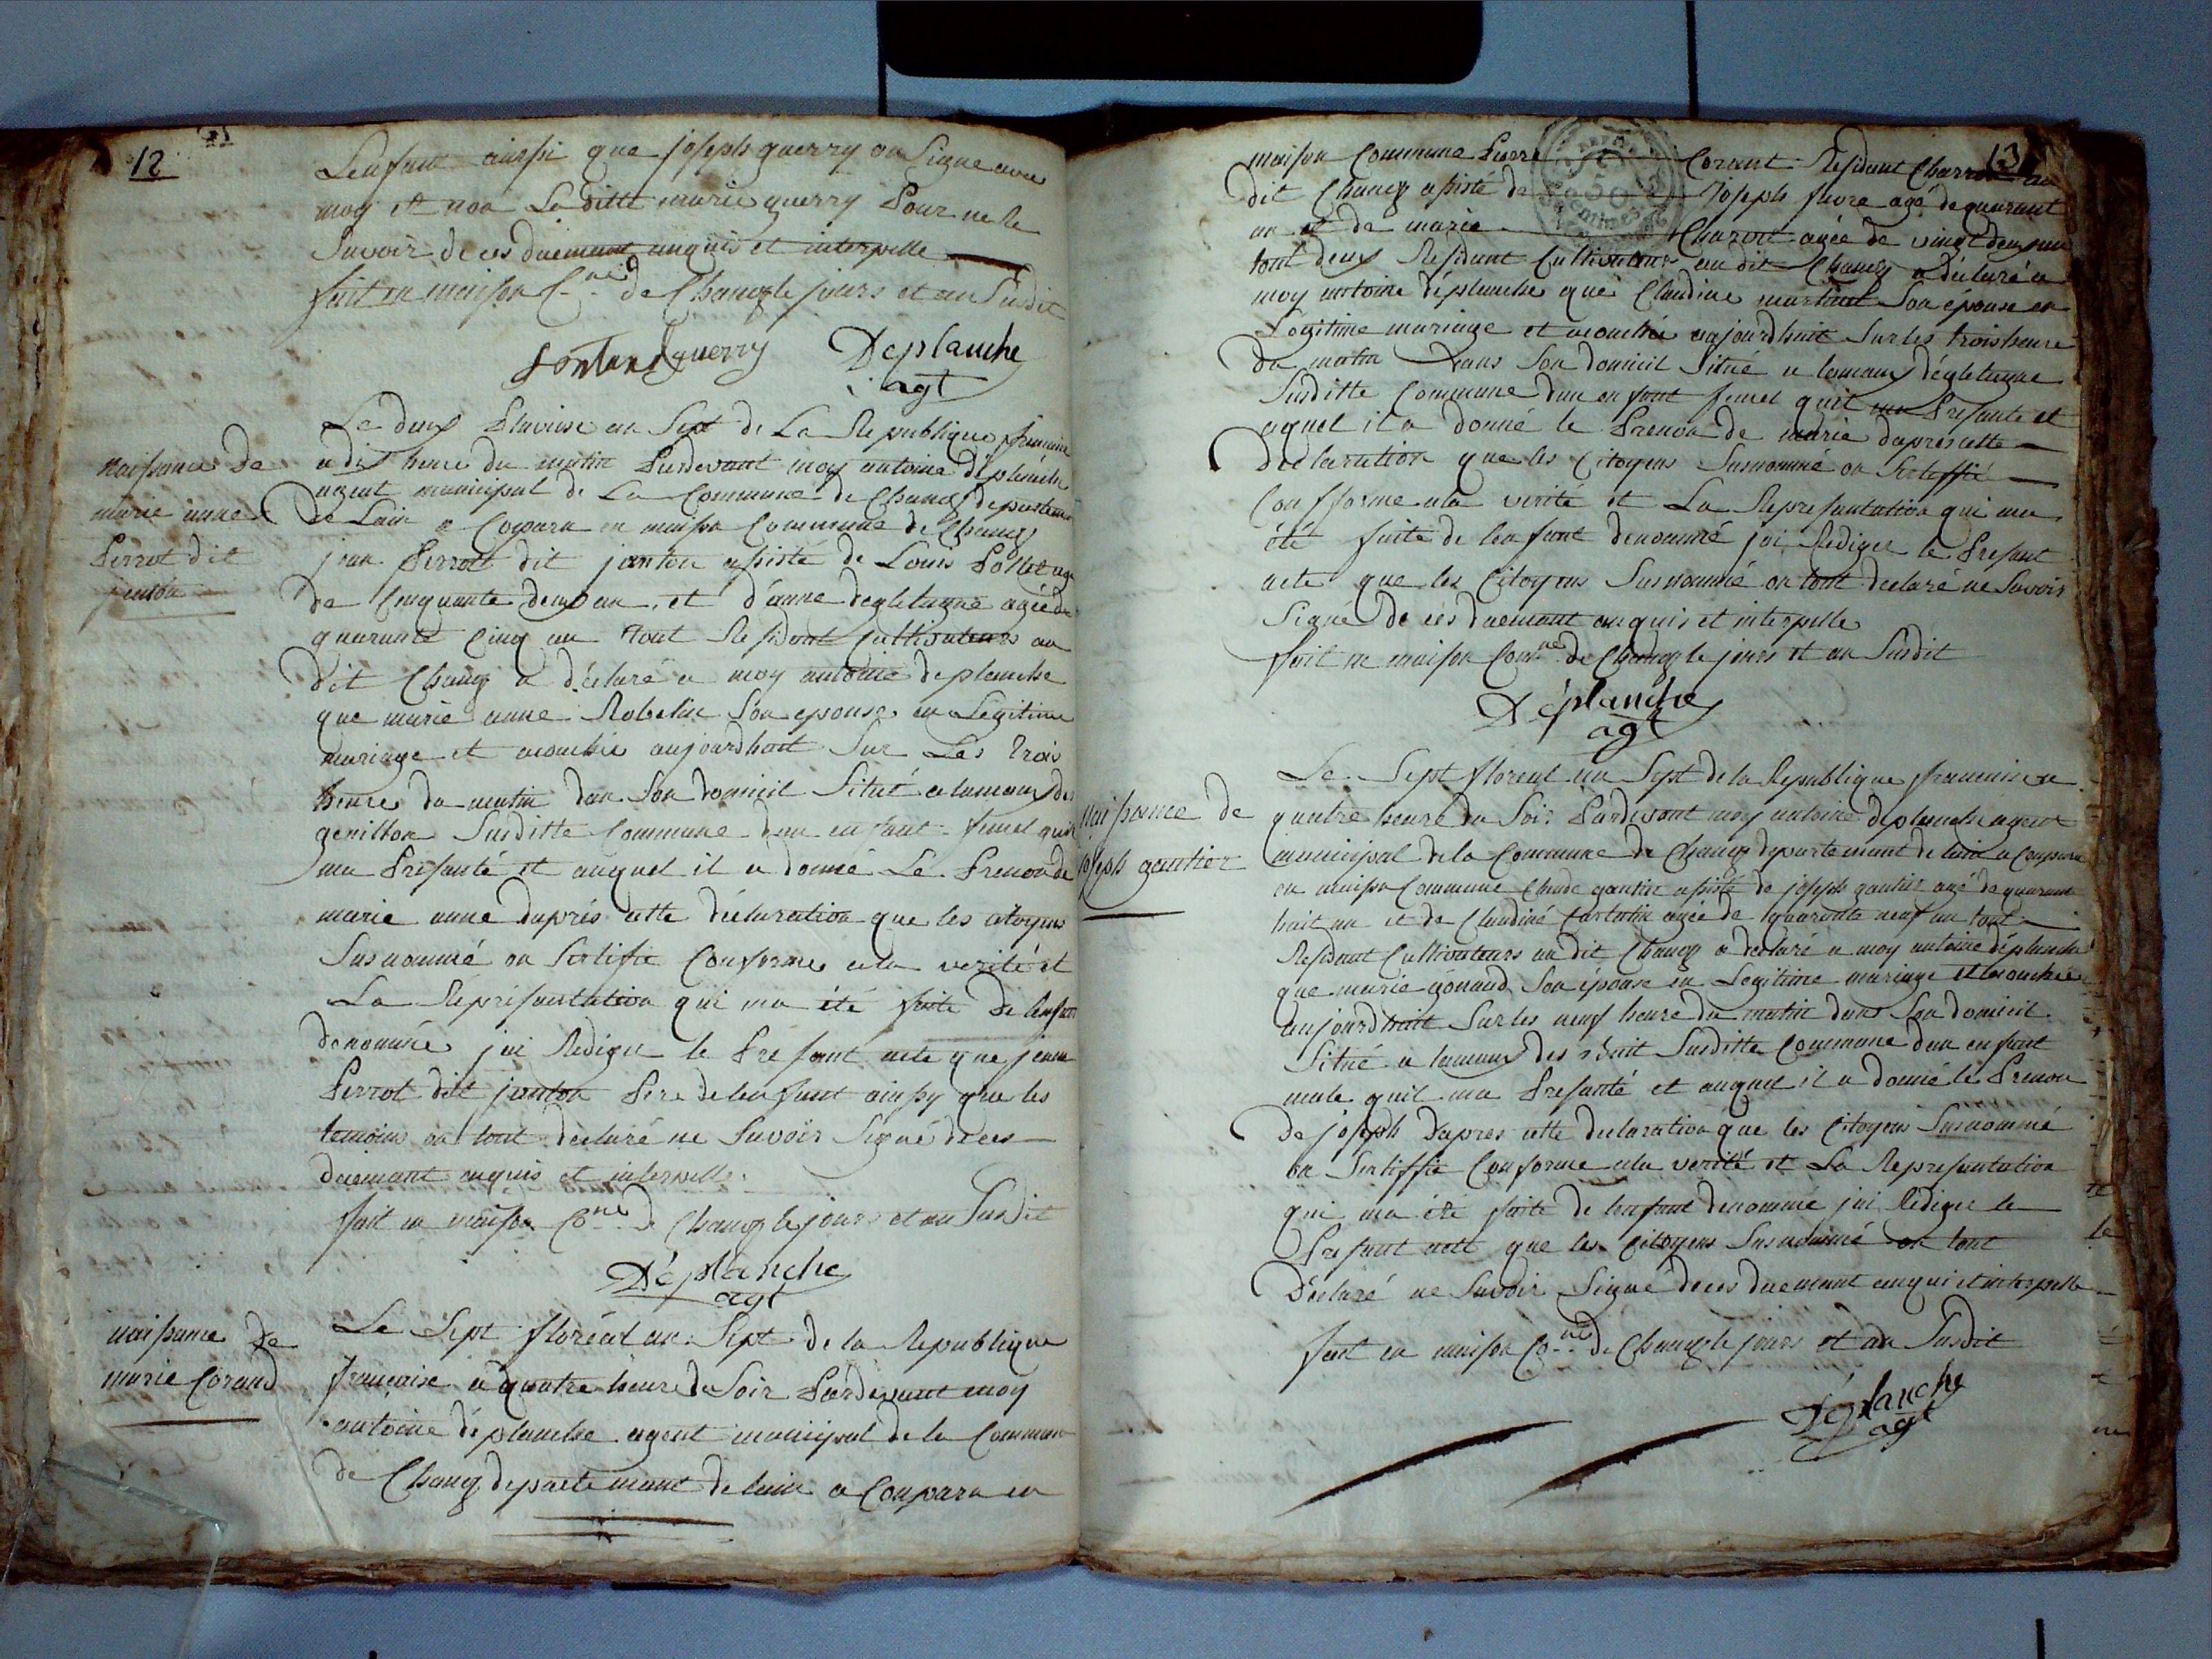 12
Lenfant ainssi que joseph guerry on Signe avec
moy et non La ditte marie guerry Pour ne le
Savoir de ces duemant enquis et interpelle
fait en maison C.ne de Chanoz le jours et an Susdit
guerry Déplanche
agt
naissance de
marie anne
Perrot dit
janton
Le deux Pluviose an Sept de La Republique francaise
a dix heure du matin Pardevant moy antoine déplanche
agent municipal de La Commune de Chanoz departemant
de Lain a Copara en maison Commune de Chanoz
jean Perrott dit janton asisté de Louis Pollet age
de Cinquante deux an, et d'anne degletagne agée de
quarante Cinq an tout Residant Cultivateurs au
dit Chanoz a déclaré a moy antoine deplanche
que marie anne Robelin Son epouse en Legitime
mariage et acouchée aujourdhuit Sur Les trois
heure du matin dan Son domicil Situé a lamaux de
genillon Susditte Commune dun enfant femel quil
ma Présanté et auquel il a donné Le Prenon de
marie anne daprés cette déclaration que les citoyens
Susnommé on Sertifie Conforme ala verité et
La Représantation qui ma été faite de lenfant
denommé jai Redigee le Presant acte que jean
Perrot dit janton Pere de lenfant ainssy que les
temoins on tout declaré ne Savoir Signé de ces
duemant enquis et interpelle
fait en maison Co.ne de Chanoz le jours et an Susdit
Déplanche
agt
naissance de
marie Corand
Le Sept floréal an Sept de la Republique
francaise a quatre heure du Soir Pardevant moy
antoine déplanche agent municipal de la Commune
de Chanoz departemant de lain a Conpara en
13
maison Commune Pierre Corant Residant Charron au
dit Chanoz asisté de Joseph fievre agé de quarant
an et de marie Charvet agée de vingt deux an
tout deux Residant Cultivateurs au dit Chanoz a déclaré a
moy antoine déplanche que Claudine Son épouse en
Légitime mariage et acouchée aujourdhuit Sur les trois heure
du matin dans Son domicil Situé a lamaux dégletagne
Susditte Commune dun enfant femel quil ma Presante et
aquel il a donné le Prenon de marie daprés cette
déclaration que les Citoyens Susnommé on Sertiffié
Confforme ala verité et La Represantation qui ma
été faite de lenfant denommé jai Redigee le Presant
acte que les Citoyens Susnommé on tout declaré ne Savoir
Signe de ces duemant enquis et interpelle
fait en maison Com.ne de Chanoz le jours et an Susdit
Déplanche
agt
naissance de
joseph gautier
Le Sept floreal an Sept de la Republique francaise a
quatre heure du Soir Pardevant moy antoine déplanche agent
municipal de la Commune de Chanoz departemant de lain a Conpara
en maison Commune Claude gautier asisté de joseph gautier agé de quarant
huit an et de Claudine agée de quarante neuf an tout
Residant Cultivateurs au dit Chanoz a declaré a moy antoine déplanche
que marie gonand Son épouse en Legitime mariage et acouchée
aujourdhuit Sur les neuf heure du matin dans Son domicil
Situé a lamaux des Susditte Commune dun enfant
male quil ma Presanté et auquel il a donné le Prenon
de joseph dapres cette declaration que les Citoyens Susnommé
on Sertiffie Conforme ala verité et La Represantation
qui ma été faite de lenfant denomme jai Redigee le
Presant acte que les Citoyens Susnommé on tout
Déclaré ne Savoir Signé de ces duemant enqui et interpelle
fait en maison Co.ne de Chanoz le jours et an Susdit
Déplanche
agt